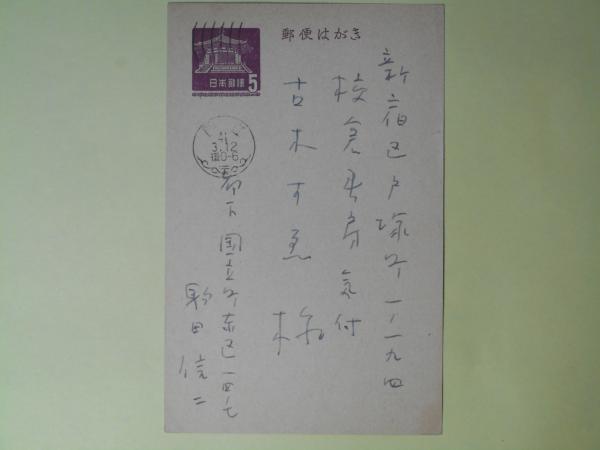 郵便はがき
日本郵便
5
3.12
新宿区戸塚町一ノ一九四
校倉書房気付
古木すゑ様
都下国立町東区一四ノ七
駒田信二